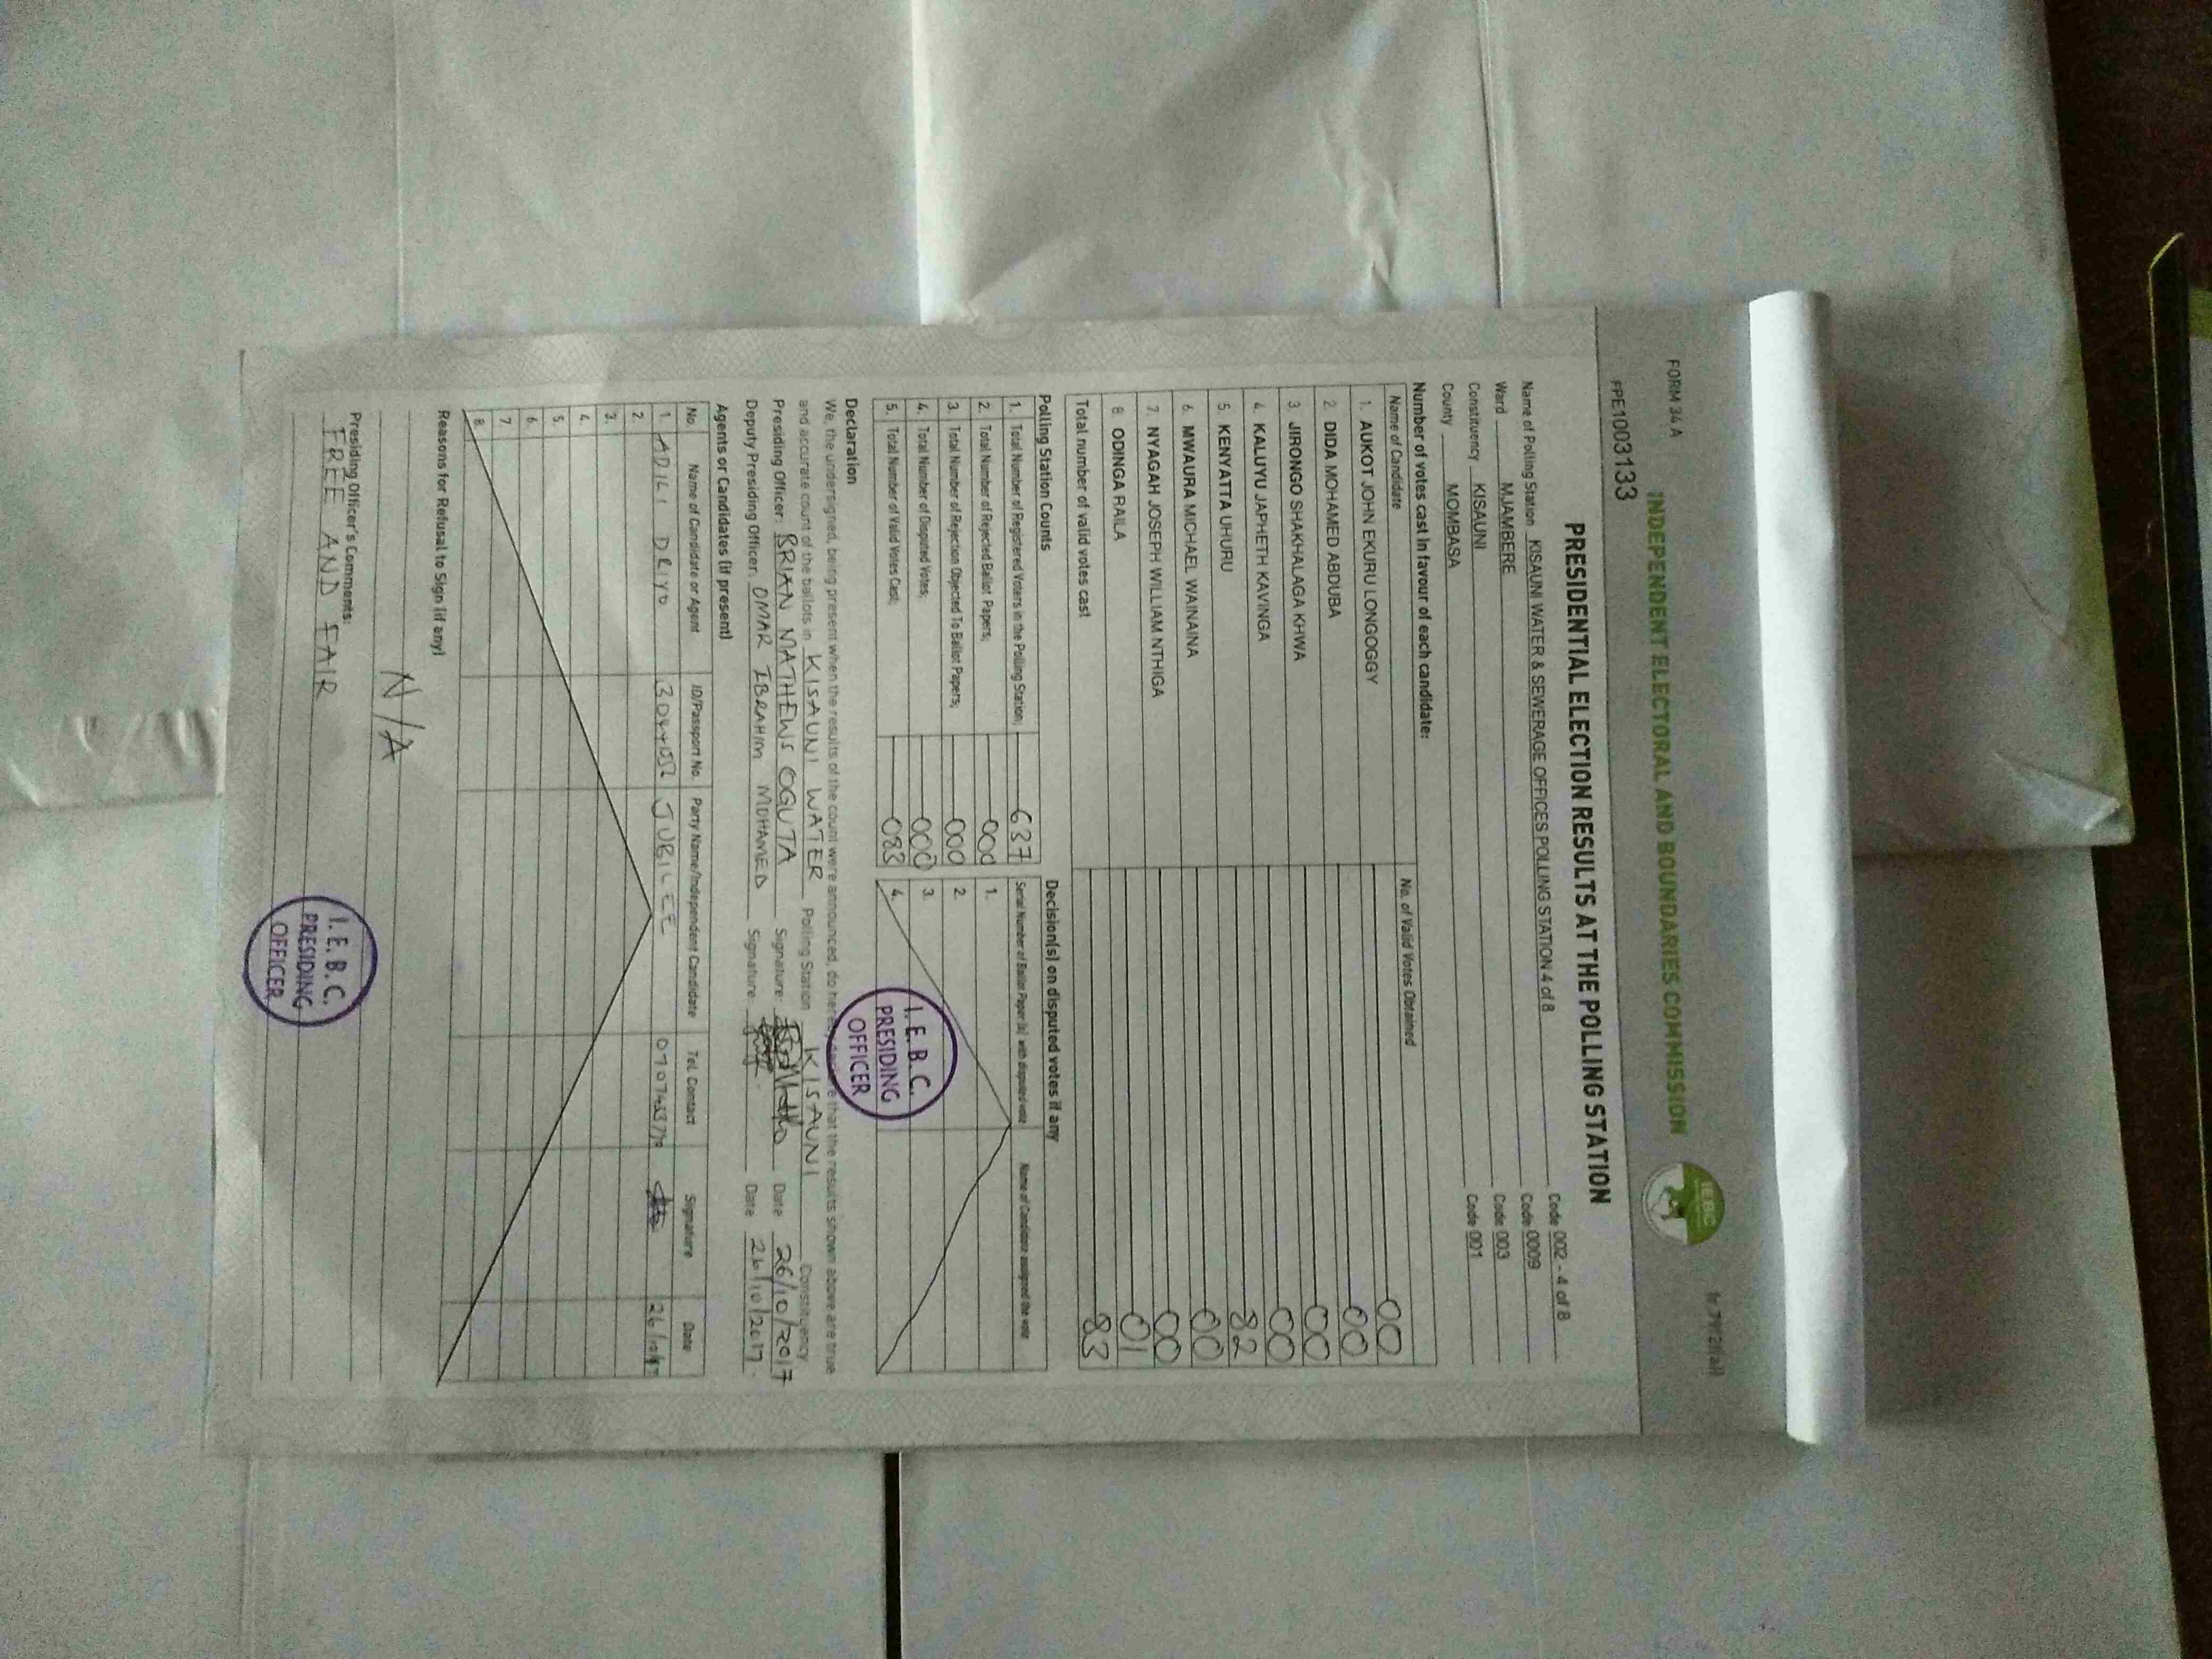 FORM 34 A
INDEPENDENT ELECTORAL AND BOUNDARIES COMMISSION
IEBC
PPE1003133
PRESIDENTIAL ELECTION RESULTS AT THE POLLING STATION
Name of Polling Station KISAUNI WATER & SEWERAGE OFFICES POLLING STATION 4 of 8 Code 002 - 4 of 8
Ward MJAMBERE Code 0009
Constituency KISAUNI Code 003
County MOMBASA Code 001
Number of votes cast in favour of each candidate:
Name of Candidate No. of Valid Votes Obtained
1. AUKOT JOHN EKURU LONGOGGY 00
2. DIDA MOHAMED ABDUBA 00
3. JIRONGO SHAKHALAGA KHWA 00
4. KALUYU JAPHETH KAVINGA 00
5. KENYATTA UHURU 82
6. MWAURA MICHAEL WAINAINA 00
7. NYAGAH JOSEPH WILLIAM NTHIGA 00
8. ODINGA RAILA 01
Total number of valid votes cast 83
Polling Station Counts
1. Total Number of Registered Voters in the Polling Station; 637
2. Total Number of Rejected Ballot Papers; 000
3. Total Number of Rejection Objected To Ballot Papers; 000
4. Total Number of Disputed Votes; 000
5. Total Number of Valid Votes Cast; 083
Decision(s) on disputed votes if any
Serial Number of Ballot Paper(s) with disputed vote Name of Candidate assigned the vote
1.
2.
3.
4.
I. E. B. C.
PRESIDING
OFFICER
Declaration
We, the undersigned, being present when the results of the count were announced, do hereby that the results shown above are true
and accurate count of the ballots in KISAUNI WATER Polling Station KISAUNI Constituency
Presiding Officer: BRIAN MATHEWS OGUTA Signature: Date 26/10/2017
Deputy Presiding Officer: OMAR IBRAHIM MOHAMED Signature: Date 26/10/2017
Agents or Candidates (if present)
No. Name of Candidate or Agent ID/Passport No. Party Name/Independent Candidate Tel. Contact Signature Date
1. ADILI DRIYO JUBILEE
2.
3.
4.
5.
6.
7.
8.
Reasons for Refusal to Sign (if any)
N/A
Presiding Officer's Comments:
FREE AND FAIR
I. E. B. C.
PRESIDING
OFFICER